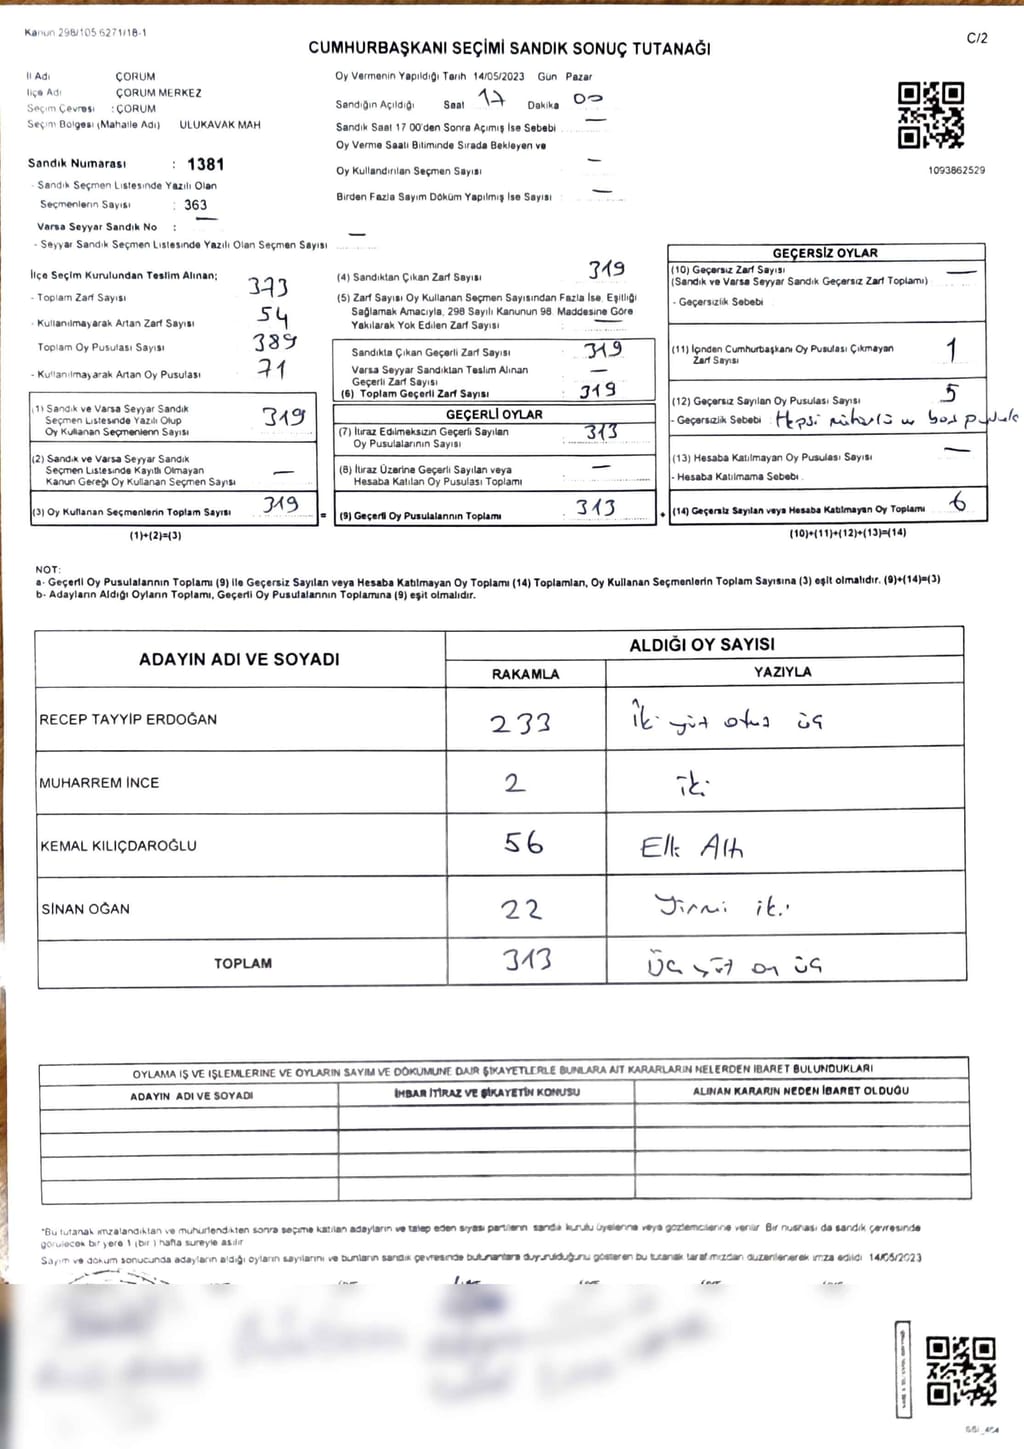 Kanun 298/105 6271/18-1
C/2
CUMHURBAŞKANI SEÇİMİ SANDIK SONUÇ TUTANAĞI
İl Adı ÇORUM
İlçe Adı ÇORUM MERKEZ
Seçim Çevresi : ÇORUM
Seçim Bölgesi (Mahalle Adı) ULUKAVAK MAH
Sandık Numarası : 1381
- Sandık Seçmen Listesinde Yazılı Olan
Seçmenlerin Sayısı : 363
Varsa Seyyar Sandık No : —
- Seyyar Sandık Seçmen Listesinde Yazılı Olan Seçmen Sayısı —
Oy Vermenin Yapıldığı Tarih 14/05/2023 Gün Pazar
Sandığın Açıldığı Saat 17 Dakika 00
Sandık Saat 17 00'den Sonra Açımış İse Sebebi —
Oy Verme Saati Bitiminde Sırada Bekleyen ve
Oy Kullandırılan Seçmen Sayısı —
Birden Fazla Sayım Döküm Yapılmış İse Sayısı —
1093862529
İlçe Seçim Kurulundan Teslim Alınan;
- Toplam Zarf Sayısı 373
- Kullanılmayarak Artan Zarf Sayısı 54
Toplam Oy Pusulası Sayısı 389
- Kullanılmayarak Artan Oy Pusulası 71
(1) Sandık ve Varsa Seyyar Sandık
Seçmen Listesinde Yazılı Olup
Oy Kullanan Seçmenlerin Sayısı 319
(2) Sandık ve Varsa Seyyar Sandık
Seçmen Listesinde Kayıtlı Olmayan
Kanun Gereği Oy Kullanan Seçmen Sayısı —
(3) Oy Kullanan Seçmenlerin Toplam Sayısı 319 =
(1)+(2)=(3)
(4) Sandıktan Çıkan Zarf Sayısı 319
(5) Zarf Sayısı Oy Kullanan Seçmen Sayısından Fazla İse, Eşitliği
Sağlamak Amacıyla, 298 Sayılı Kanunun 98. Maddesine Göre
Yakılarak Yok Edilen Zarf Sayısı : —
Sandıkta Çıkan Geçerli Zarf Sayısı 319
Varsa Seyyar Sandıktan Teslim Alınan
Geçerli Zarf Sayısı —
(6) Toplam Geçerli Zarf Sayısı : 319
GEÇERLİ OYLAR
(7) İtiraz Edilmeksizin Geçerli Sayılan
Oy Pusulalarının Sayısı : 313
(8) İtiraz Üzerine Geçerli Sayılan veya
Hesaba Katılan Oy Pusulası Toplamı —
(9) Geçerli Oy Pusulalarının Toplamı : 313 +
GEÇERSİZ OYLAR
(10) Geçersiz Zarf Sayısı
(Sandık ve Varsa Seyyar Sandık Geçersiz Zarf Toplamı) —
- Geçersizlik Sebebi
(11) İçinden Cumhurbaşkanı Oy Pusulası Çıkmayan
Zarf Sayısı 1
(12) Geçersiz Sayılan Oy Pusulası Sayısı 5
- Geçersizlik Sebebi : Hepsi mühürlü ve boş pusula
(13) Hesaba Katılmayan Oy Pusulası Sayısı —
- Hesaba Katılmama Sebebi
(14) Geçersiz Sayılan veya Hesaba Katılmayan Oy Toplamı 6
(10)+(11)+(12)+(13)=(14)
NOT:
a- Geçerli Oy Pusulalarının Toplamı (9) ile Geçersiz Sayılan veya Hesaba Katılmayan Oy Toplamı (14) Toplamları, Oy Kullanan Seçmenlerin Toplam Sayısına (3) eşit olmalıdır. (9)+(14)=(3)
b- Adayların Aldığı Oyların Toplamı, Geçerli Oy Pusulalarının Toplamına (9) eşit olmalıdır.
ADAYIN ADI VE SOYADI
ALDIĞI OY SAYISI
RAKAMLA YAZIYLA
RECEP TAYYİP ERDOĞAN 233 İki yüz otuz üç
MUHARREM İNCE 2 iki
KEMAL KILIÇDAROĞLU 56 Elli Altı
SİNAN OĞAN 22 Yirmi iki
TOPLAM 313 Üç yüz on üç
OYLAMA İŞ VE İŞLEMLERİNE VE OYLARIN SAYIM VE DÖKÜMÜNE DAİR ŞİKAYETLERLE BUNLARA AİT KARARLARIN NELERDEN İBARET BULUNDUKLARI
ADAYIN ADI VE SOYADI İHBAR İTİRAZ VE ŞİKAYETİN KONUSU ALINAN KARARIN NEDEN İBARET OLDUĞU
*Bu tutanak imzalandıktan ve mühürlendikten sonra seçime katılan adayların ve talep eden siyasi partilerin sandık kurulu üyelerine veya gözlemcilerine verilir. Bir nüshası da sandık çevresinde
görülecek bir yere 1 (bir) hafta süreyle asılır
Sayım ve döküm sonucunda adayların aldığı oyların sayılarını ve bunların sandık çevresinde bulunanlara duyurulduğunu gösteren bu tutanak tarafımızdan düzenlenerek imza edildi 14/05/2023